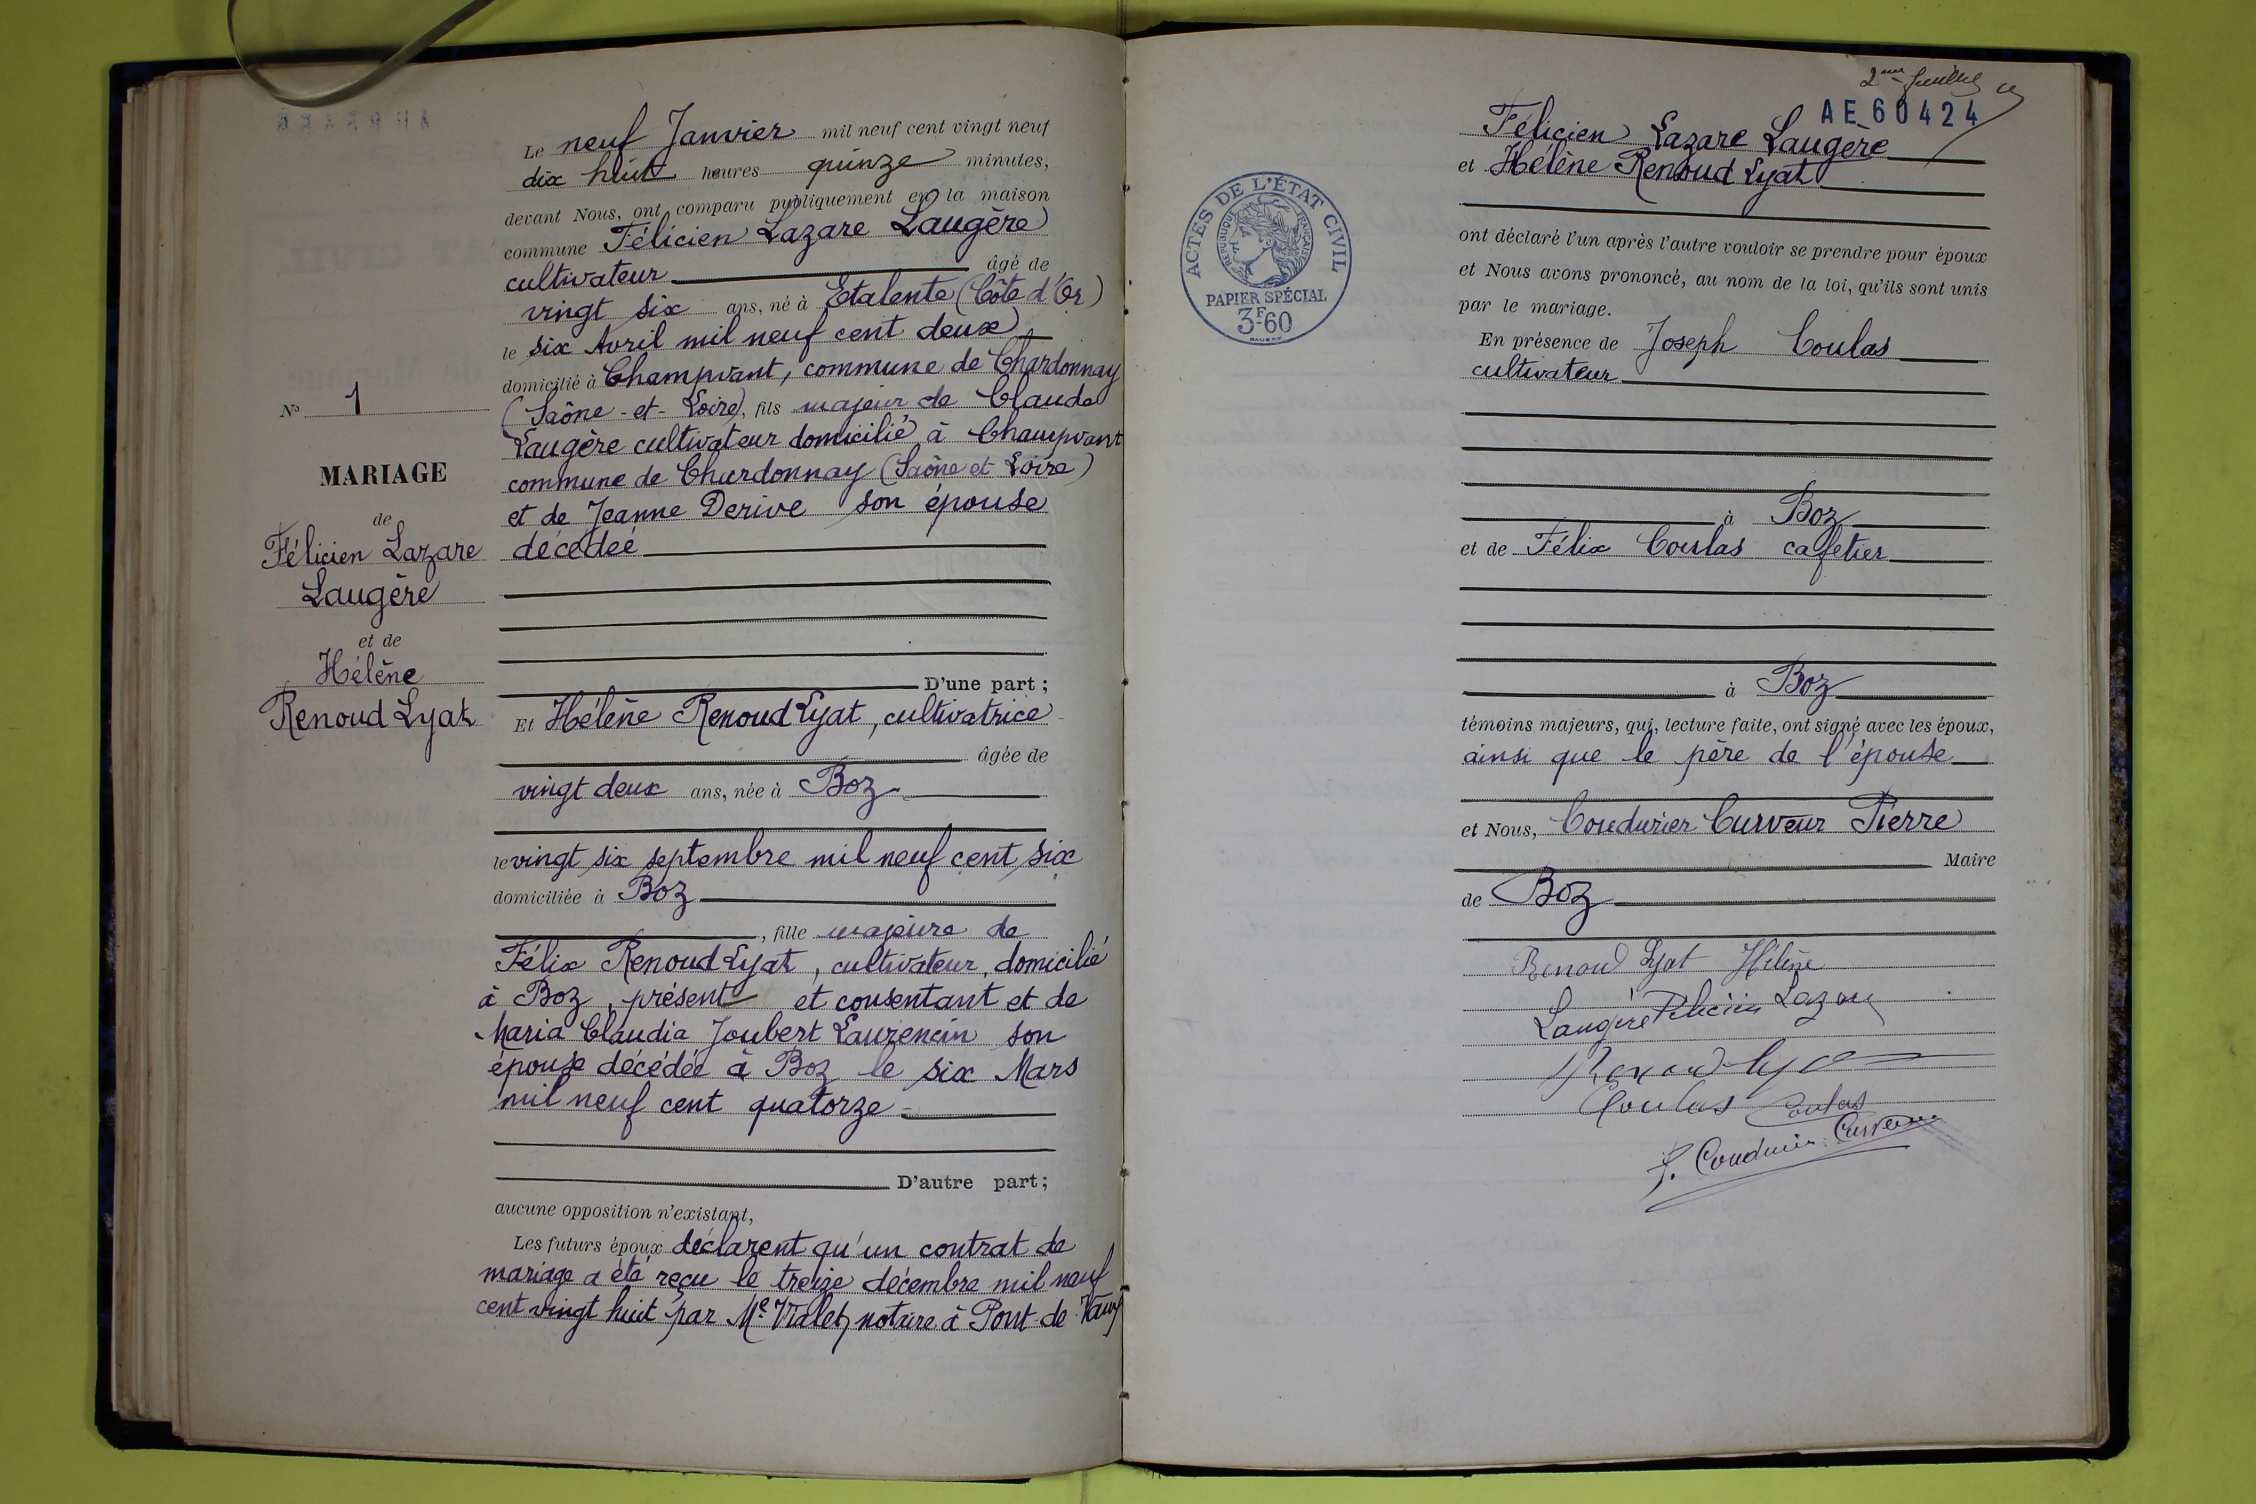 N° 1
MARIAGE
de
Félicien Lazare
Laugère
et de
Hélène
Renoud Lyat
Le neuf Janvier mil neuf cent vingt neuf
dix huit heures quinze minutes,
devant Nous, ont comparu publiquement en la maison
commune Félicien Lazare Laugère
cultivateur âgé de
vingt six ans, né à Etalente (Côte d'Or)
le six Avril mil neuf cent deux
domicilié à Champvant, commune de Chardonnay
(Saône-et-Loire), fils majeur de Claude
Laugère cultivateur domicilié à Champvant
commune de Chardonnay (Saône et Loire)
et de Jeanne Derive son épouse
décédée
D'une part;
Et Hélène Renoud Lyat, cultivatrice
âgée de
vingt deux ans, née à Boz
le vingt six septembre mil neuf cent six
domiciliée à Boz
, fille majeure de
Félix Renoud Lyat, cultivateur, domicilié
à Boz, présent et consentant et de
Maria Claudia Joubert Laurencin son
épouse décédée à Boz le six Mars
mil neuf cent quatorze
D'autre part;
aucune opposition n'existant,
Les futurs époux déclarent qu'un contrat de
mariage a été reçu le treize décembre mil neuf
cent vingt huit par Me Vialet, notaire à Pont-de-Vaux
AE 60424
Félicien Lazare Laugère
et Hélène Renoud Lyat
ACTES DE L'ÉTAT CIVIL
RÉPUBLIQUE FRANÇAISE
PAPIER SPÉCIAL
3F.60
ont déclaré l'un après l'autre vouloir se prendre pour époux
et Nous avons prononcé, au nom de la loi, qu'ils sont unis
par le mariage.
En présence de Joseph Coulas
cultivateur
à Boz
et de Félix Coulas cafetier
à Boz
témoins majeurs, qui, lecture faite, ont signé avec les époux,
ainsi que le père de l'épouse
et Nous, Coudurier Curveur Pierre
Maire
de Boz
Renoud Lyat Hélène
Laugère Félicien Lazare
Renoud Lyat
Coulas Coulas
P. Coudurier Curveur